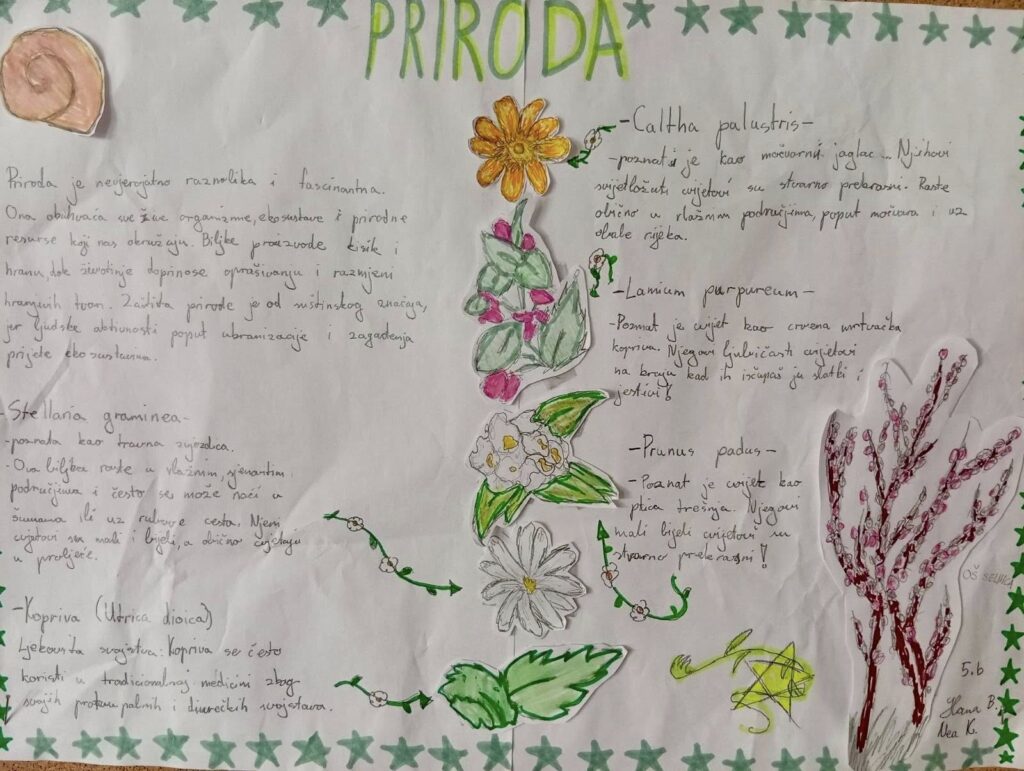 PRIRODA
Priroda je nevjerojatno raznolika i fascinantna.
Ona obuhvaća sve žive organizme, ekosustave i prirodne
resurse koji nas okružuju. Biljke proizvode kisik i
hranu, dok životinje doprinose oprašivanju i razmjeni
hranjivih tvari. Zaštita prirode je od suštinskog značaja,
jer ljudske aktivnosti poput ubranizacije i zagađenja
prijete ekosustavima.
-Stellaria graminea-
-poznata kao travna zvjezdica.
-Ova biljka raste u vlažnim, sjenovitim
područjima i često se može naći u
šumama ili uz rubove cesta. Njeni
cvjetovi su mali i bijeli, a obično cvjetaju
u proljeće.
-Kopriva (Utrica dioica)
Ljekovita svojstva: Kopriva se često
koristi u tradicionalnoj medicini zbog
svojih protuupalnih i diuretičkih svojstava.
-Caltha palustris-
-poznati je kao močvarni jaglac... Njihovi
svijetložuti cvijetovi su stvarno prekrasni. Raste
obično u vlažnim područjima, poput močvara i uz
obale rijeka.
-Lamium purpureum-
-Poznat je cvijet kao crvena mrtvačka
kopriva. Njegovi ljubičasti cvijetovi
na kraju kad ih iščupaš su slatki i
jestivi!
-Prunus padus-
-Poznat je cvijet kao
ptica trešnja. Njegovi
mali bijeli cvijetovi su
stvarno prekrasni!
OŠ
5.b
Hana B.
Nea K.